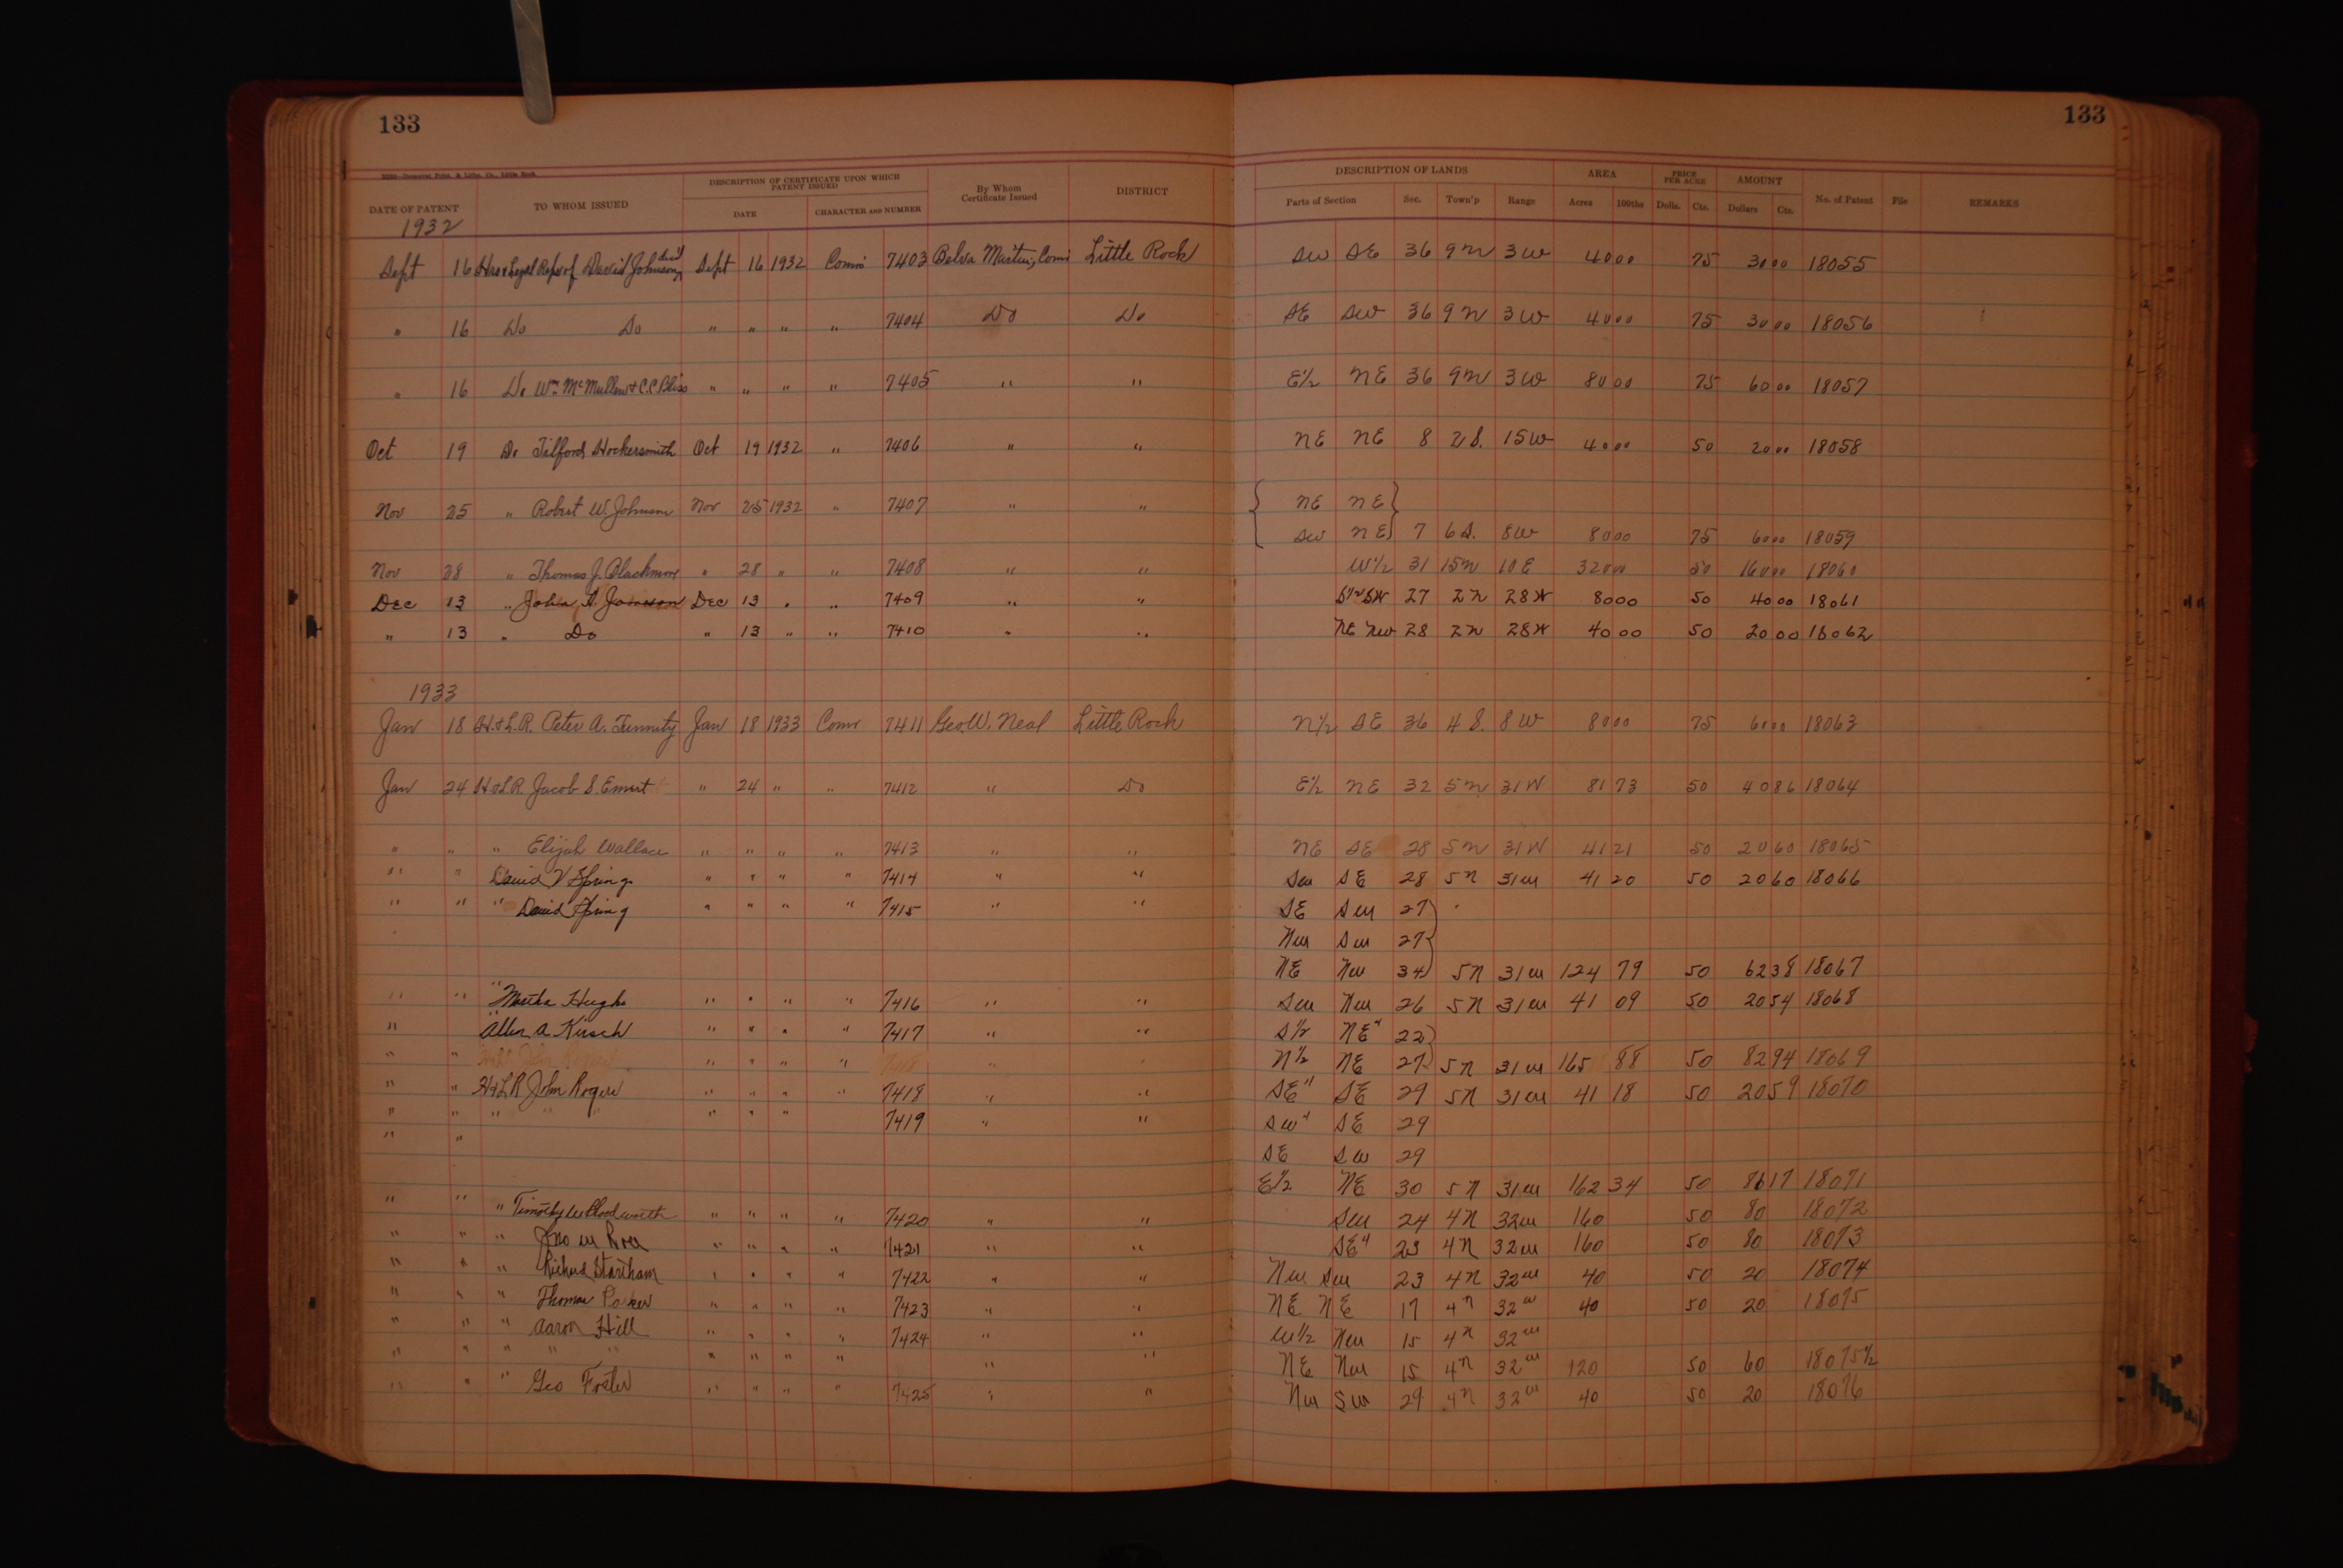 133 133
DESCRIPTION OF CERTIFICATE UPON WHICH PATENT ISSUED DESCRIPTION OF LANDS AREA PRICE PER ACRE AMOUNT
DATE OF PATENT TO WHOM ISSUED DATE CHARACTER AND NUMBER By Whom Certificate Issued DISTRICT Parts of Section Sec. Town'p Range Acres 100ths Dolls. Cts. Dollars Cts. No. of Patent File REMARKS
1932
Sept 16 Hrs & Legal Reps of David Johnson, dec'd Sept 16 1932 Comr 7403 Belva Martin, Comr Little Rock SW SE 36 9N 3W 40 00 75 30 00 18055
" 16 Do Do " " " " 7404 Do Do SE SW 36 9N 3W 40 00 75 30 00 18056
" 16 Do Wm McMullen & C.C. Bliss " " " " 7405 " " E½ NE 36 9N 3W 80 00 75 60 00 18057
Oct 19 Do Tilford Hockersmith Oct 19 1932 " 7406 " " NE NE 8 2S. 15W 40 00 50 20 00 18058
Nov 25 " Robert W. Johnson Nov 25 1932 " 7407 " " NE NE
SW NE 7 6S. 8W 80 00 75 60 00 18059
Nov 28 " Thomas J. Blackmore " 28 " " 7408 " " W½ 31 15N 10E 320 00 50 160 00 18060
Dec 13 " John A. Dec 13 " " 7409 " " S½ SW 27 2N 28W 80 00 50 40 00 18061
" 13 " Do " 13 " " 7410 " " NE NW 28 2N 28W 40 00 50 20 00 18062
1933
Jan 18 H.&L.R. Peter A. Jan 18 1933 Comr 7411 Geo. W. Neal Little Rock N½ SE 36 4S. 8W 80 00 75 60 00 18063
Jan 24 H&LR. Jacob S. Emert " 24 " " 7412 " Do E½ NE 32 5N 31W 81 73 50 40 86 18064
" " " Elijah Wallace " " " " 7413 " " NE SE 28 5N 31W 41 21 50 20 60 18065
" " David V Spring " " " " 7414 " " SW SE 28 5N 31W 41 20 50 20 60 18066
" " " David Spring " " " " 7415 " " SE SW 27
NW SW 27
NE NW 34 5N 31W 124 79 50 62 38 18067
" " " Martha Hughs " " " " 7416 " " SW NW 26 5N 31W 41 09 50 20 54 18068
" " Allen A Kirsch " " " " 7417 " " S½ NE" 22
" " " " " " " N½ NE 27 5N 31W 165 88 50 82 94 18069
" " H&LR John Rogers " " " " 7418 " " SE" SE 29 5N 31W 41 18 50 20 59 18070
" " " " " " " " 7419 " " SW" SE 29
" " SE SW 29
E½ NE 30 5N 31W 162 34 50 81 17 18071
" " " Timothy W Bloodworth " " " " 7420 " " SW 24 4N 32W 160 50 80 18072
" " " Jno W " " " " 7421 " " SE" 23 4N 32W 160 50 80 18073
" " " Richard " " " " 7422 " " NW SW 23 4N 32W 40 50 20 18074
" " " Thomas " " " " 7423 " " NE NE 17 4N 32W 40 50 20 18075
" " " Aaron Hill " " " " 7424 " " W½ NW 15 4N 32W
" " " " " " " " " " " NE NW 15 4N 32W 120 50 60 18075½
" " " Geo Foster " " " " 7425 " " NW SW 29 4N 32W 40 50 20 18076